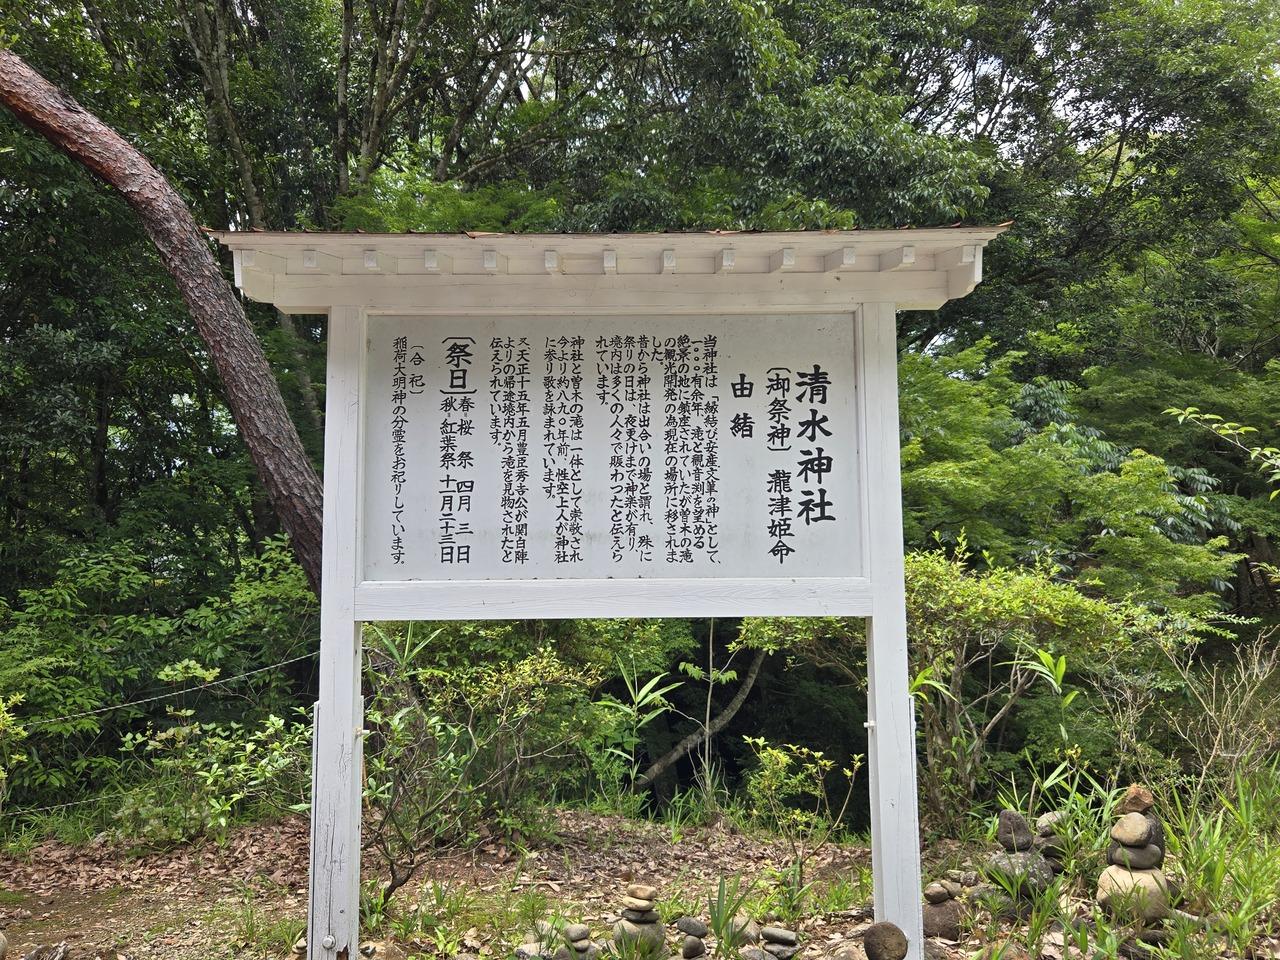 清水神社
(御祭神) 瀧津姫命
由結
当神社は「縁結び安産文筆の神」として、
一〇〇〇有余年、滝と観音渕を望める
絶景の地に鎮座されていたが曽木の滝
の観光開発の為現在の場所に移されま
した。
昔から神社は出合いの場と謂れ、殊に
祭りの日は、夜更けまで神楽が有り、
境内は多くの人々で賑わつたと伝えら
れています。
神社と曽木の滝は一体として崇敬され
今より約八九〇年前、性空上人が神社
に参り歌を詠まれています。
又天正十五年五月豊臣秀吉公が関白陣
よりの帰途境内から滝を見物されたと
伝えられています。
(祭日) 春=桜祭 四月三日
秋=紅葉祭 十一月二十三日
(合祀)
稲荷大明神の分霊をお祀りしています。